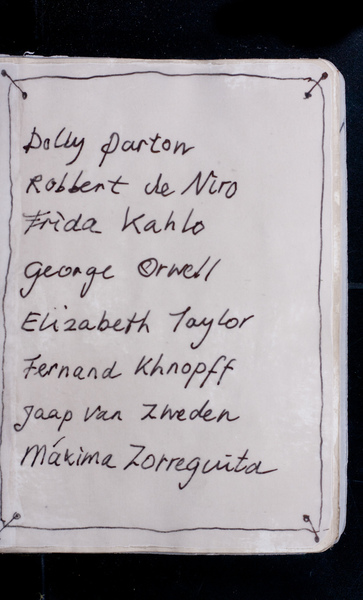 Dolly Parton
Robbert de Niro
Frida Kahlo
George Orwell
Elizabeth Taylor
Fernand Khnopff
Jaap van Zweden
Máxima Zorreguita